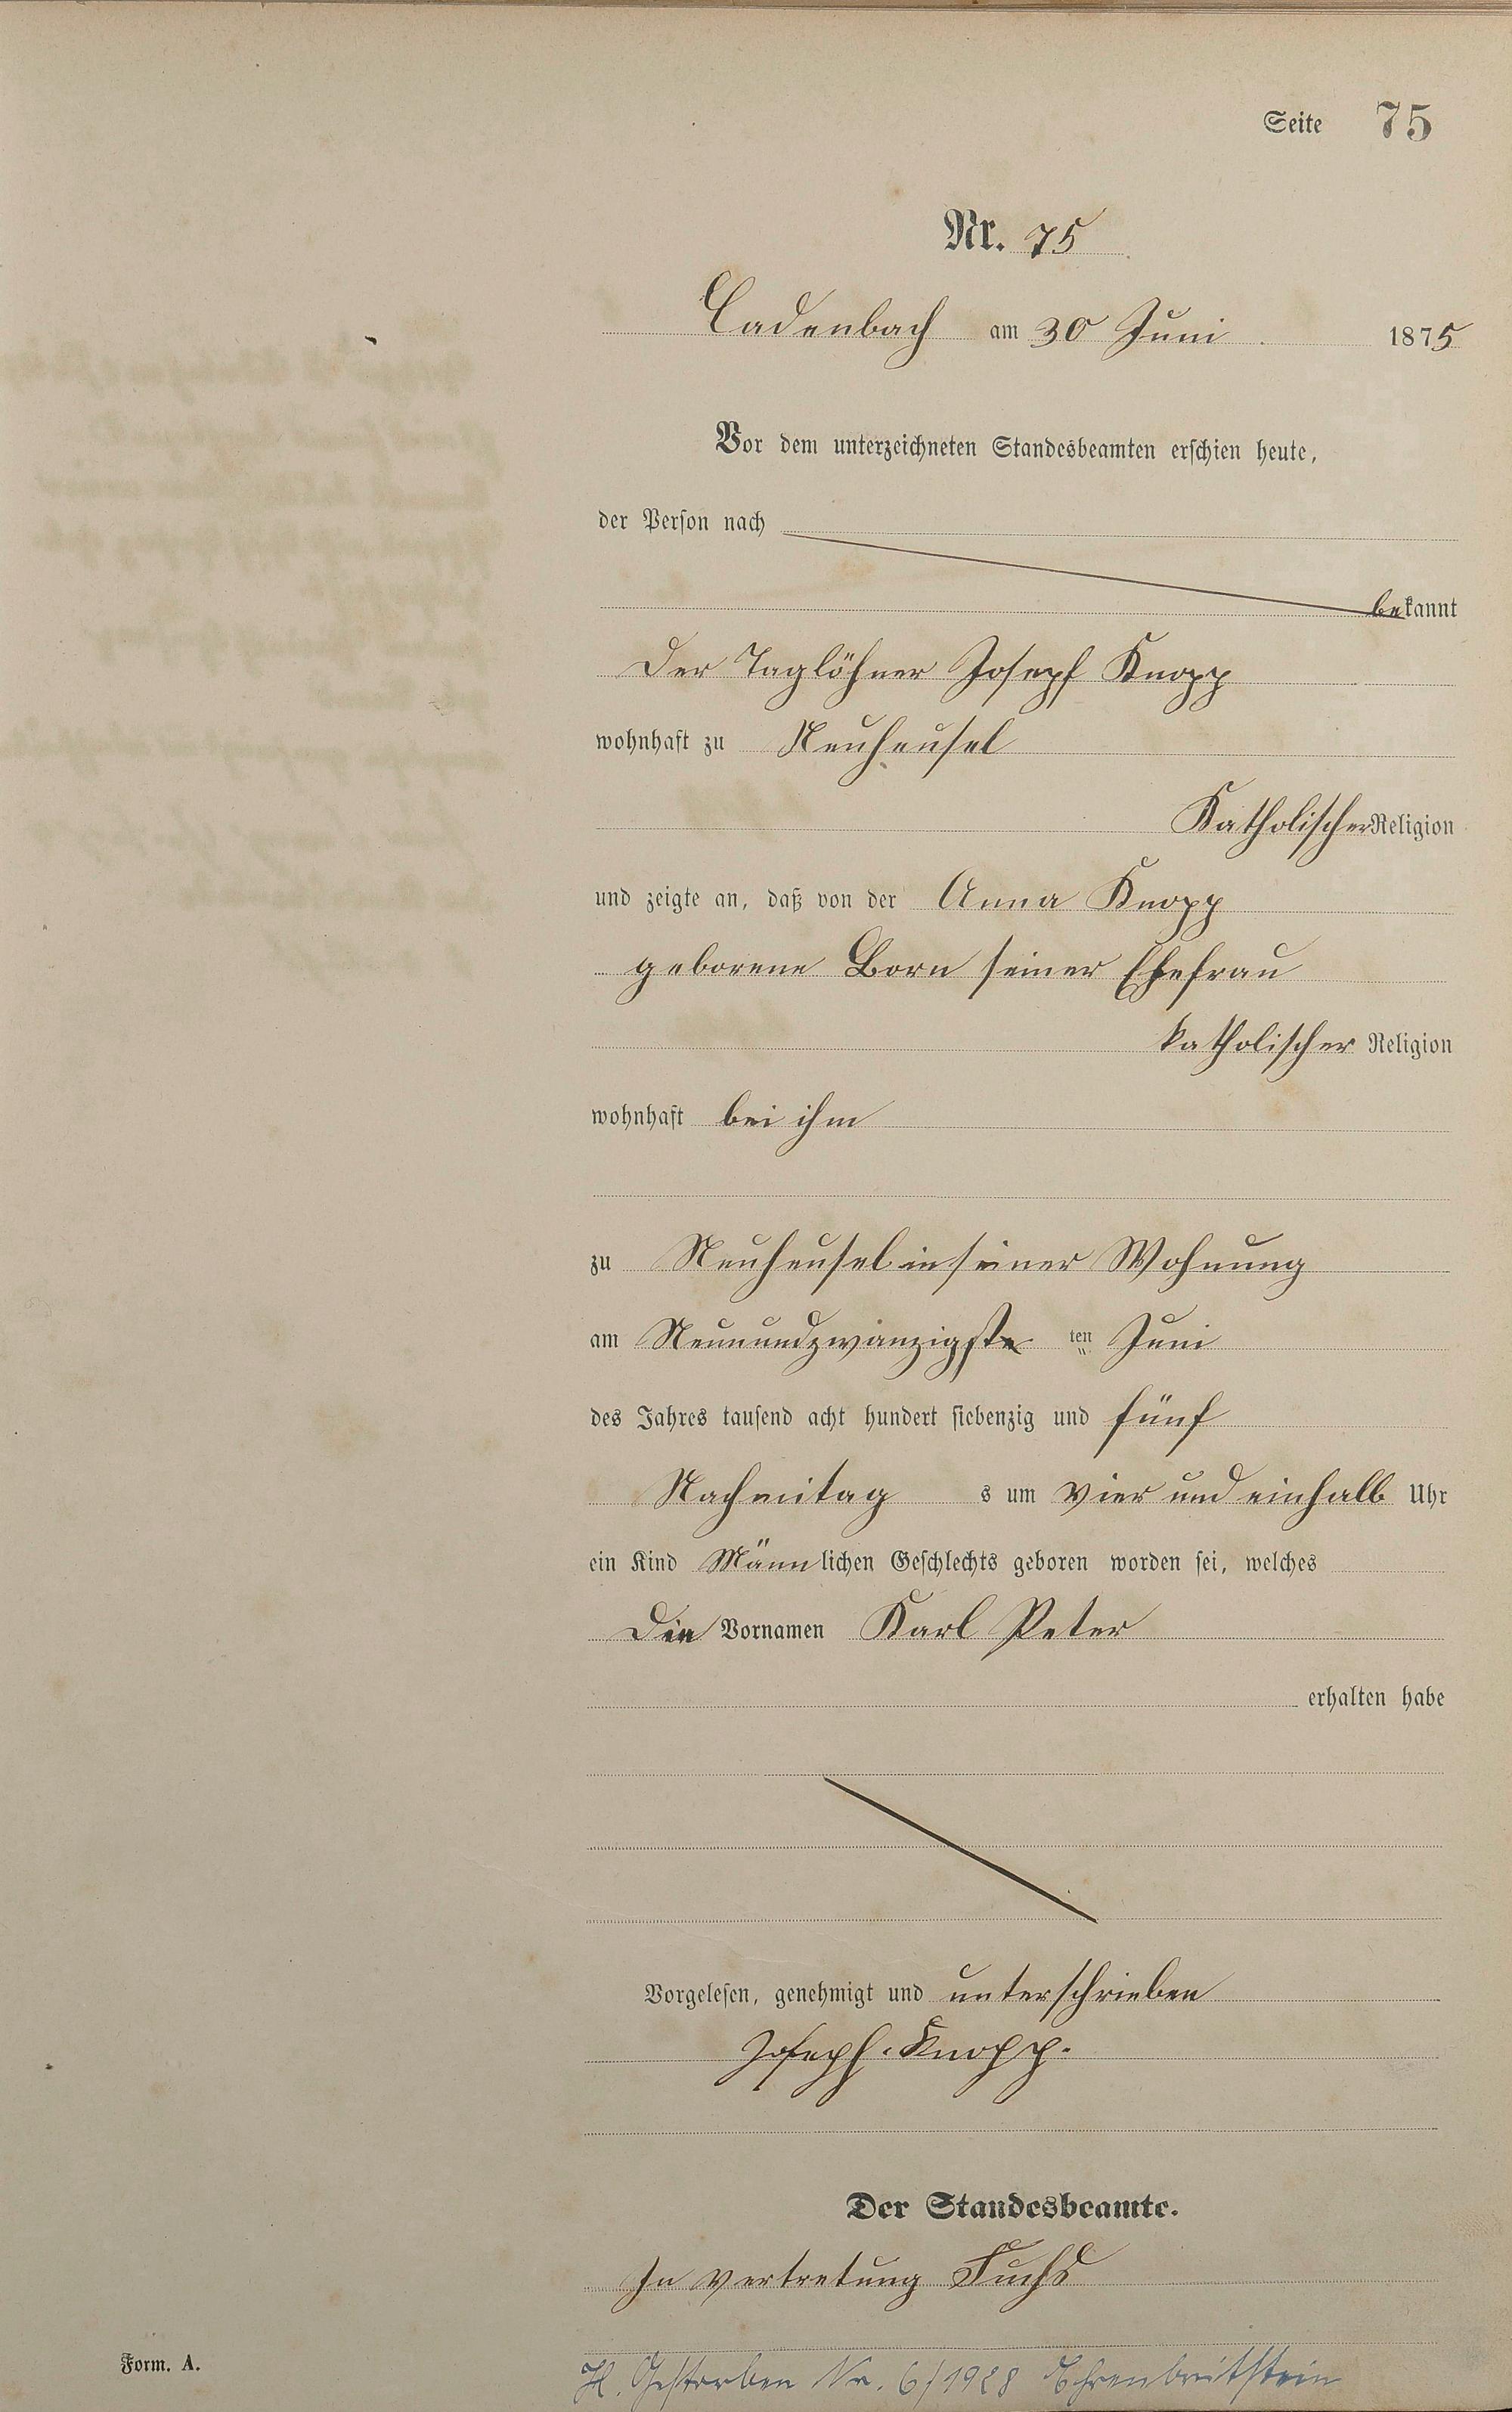 Seite 75
Nr. 75
Cadenbach am 30 Juni 1875
Vor dem unterzeichneten Standesbeamten erschien heute,
der Person nach
bekannt
Der Taglöhner Josepf Knopp
wohnhaft zu Neuheusel
Katholischer Religion
und zeigte an, daß von der Anna Knopp
geborene Born seiner Ehefrau
katholischer Religion
wohnhaft bei ihm
zu Neuheusel in seiner Wohnung
am Neunundzwanzigste ten Juni
des Jahres tausend acht hundert siebenzig und fünf
Nachmitag s um vier und einhalb Uhr
ein Kind Männlichen Geschlechts geboren worden sei, welches
Die Vornamen Karl Peter
erhalten habe
Vorgelesen, genehmigt und unterschrieben
Joseph Knopp.
Der Standesbeamte.
In Vertretung Fuchs
Form. A.
H. Gestorben Nr. 6/1928 Ehrenbreitstein